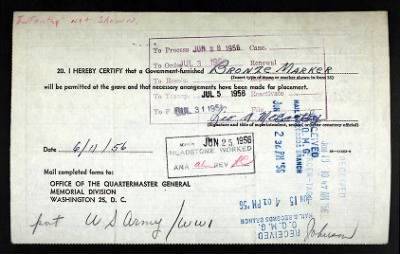 "Infantry" not shown.
To Process JUN 28 1956 Canc.
To Order JUL 3 1956 Renewal
20. I HEREBY CERTIFY that a Government-furnished BRONZE MARKER
(Insert type of stone or marker shown in Item 15)
will be permitted at the grave and that necessary arrangements have been made for placement.
JUL 5 1956 Reactivate
To F JUL 31 1956 File
(Signature and title of superintendent, sexton or cemetery official)
DATE 6/11/56
JUN 25 1956
HEADSTONE WORKED
ANA REV
RECEIVED
O.Q.M.G.
MAIL & RECORDS BRANCH
JUN 13
Mail completed forms to:
OFFICE OF THE QUARTERMASTER GENERAL
MEMORIAL DIVISION
WASHINGTON 25, D. C.
JUN 15 4 03 PM '56
MAIL & RECORDS BRANCH
O.Q.M.G.
RECEIVED
US Army / WWI
Johnson